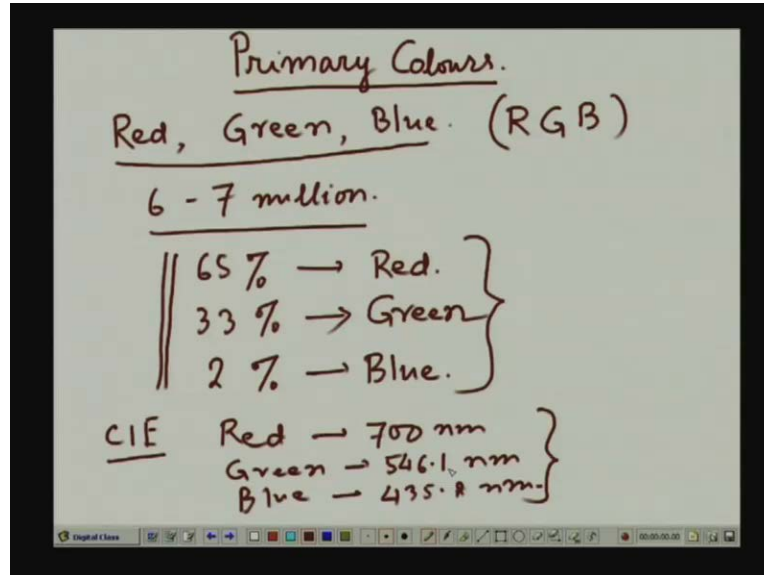 Primary Colours.
Red, Green, Blue. (RGB)
6 - 7 million.
65 % → Red.
33 % → Green
2 % → Blue.
CIE Red → 700 nm
Green → 546.1 nm
Blue → 435.8 nm.
Digital Class 00:00:00.00